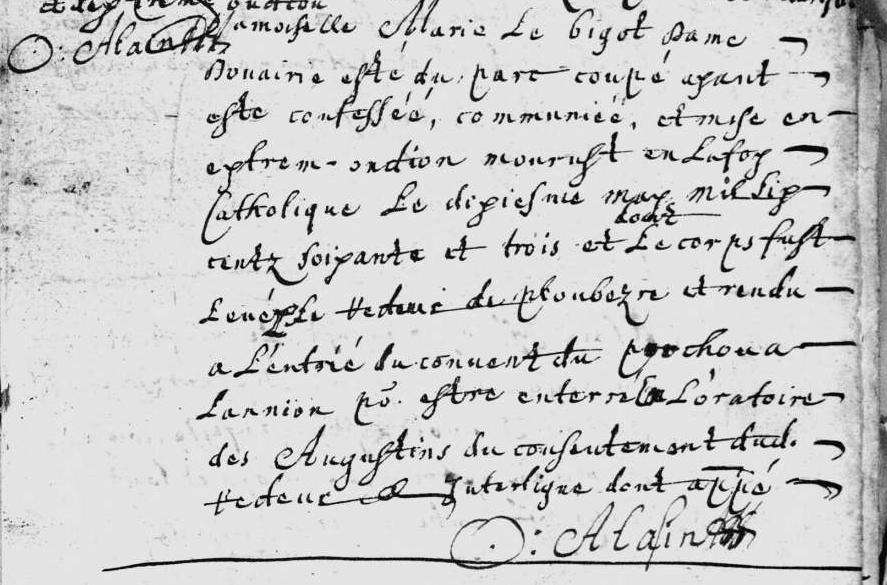 : Alain
amoiselle Marie Le bigot Dame
Douairie esté du parc coupé ayant
este confesséé, communiéé, et mise en
extrem-onction mourust en Lafoy
Catholique Le dixiesme may mil Six
centz soixante et trois et dont Le corps fust
Levé p Le Recteur de ploubezre et rendu
a L'entrié du convent du porchou a
Lannion po. estre enterré en L'oratoire
des Augustins du consentement dud.
Recteur & Interligne dont appé
: Alain